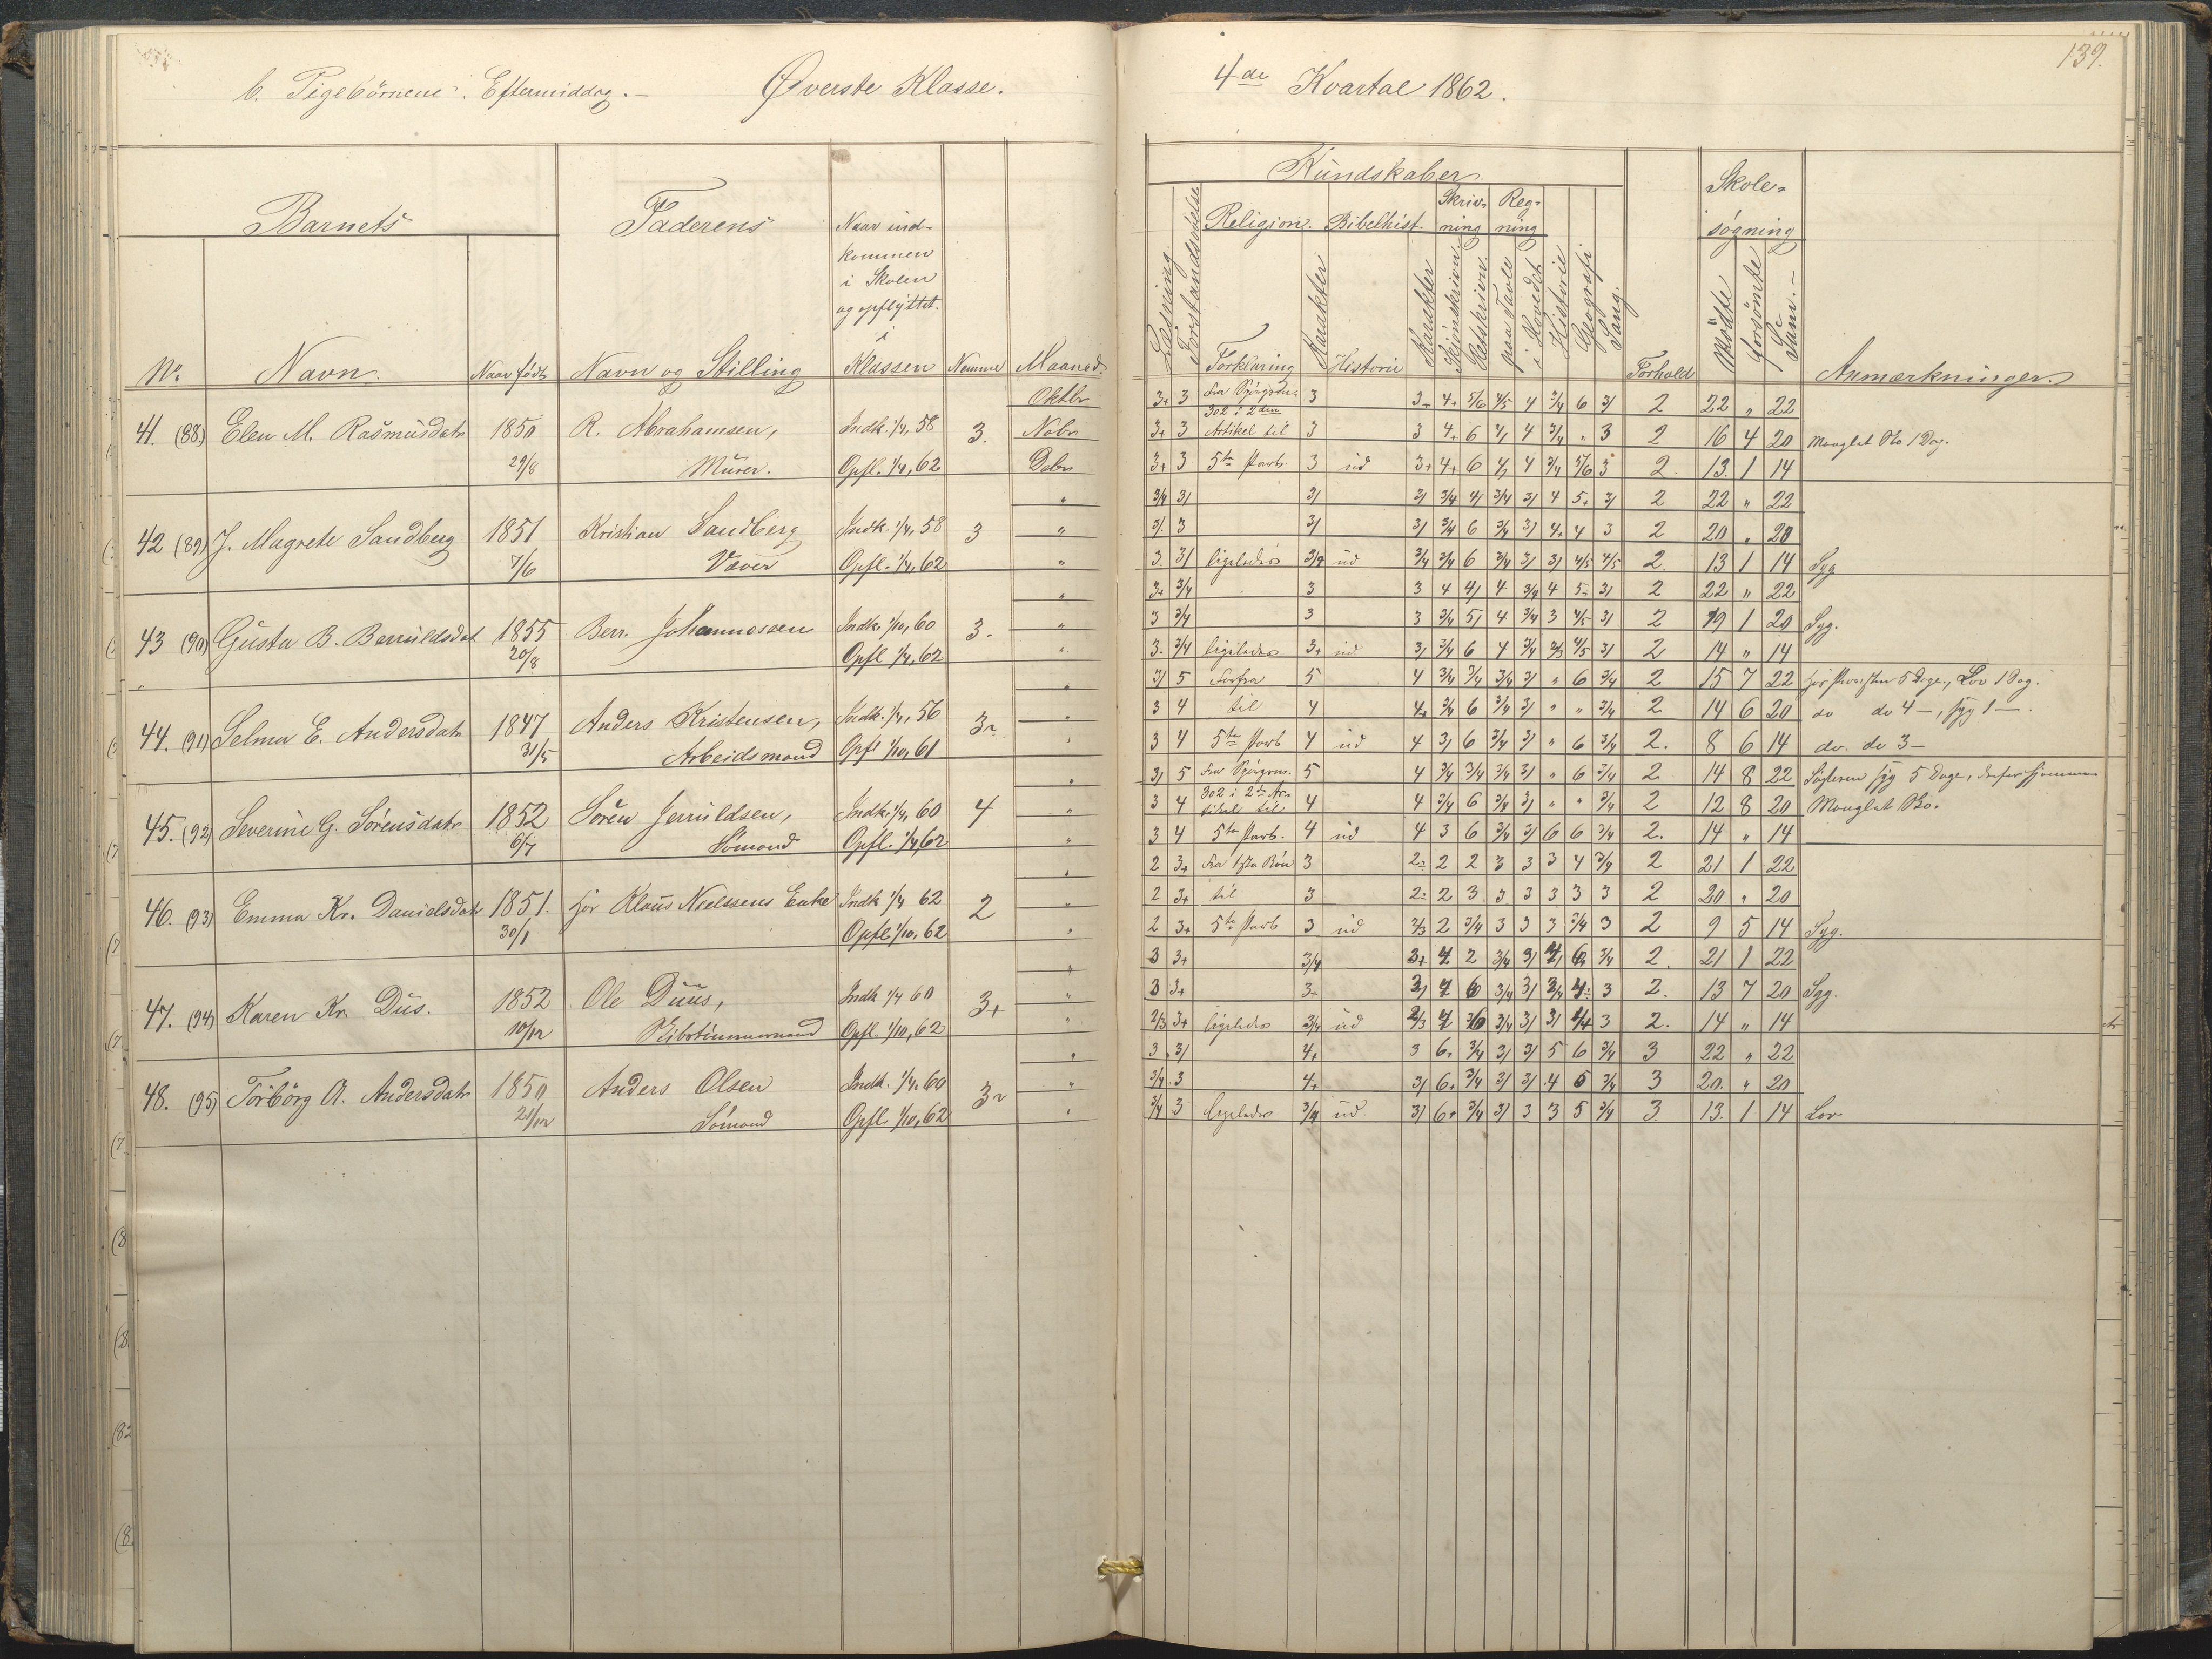 b. Pigebörnene. Eftermiddag. — Øverste Klasse.
4de Kvartal 1862.
139.
Barnets
Faderens
Naar ind-
kommen
i Skolen
og opflyttet
i
Klassen
No. Navn. Naar född Navn og Stilling Nemme Maaned.
Kundskaber
Skole-
søgning
Læsning Forstandsøvelse
Religion. Bibelhist. Skriv-ning Reg-ning
Forklaring Karakter Historie Karakter Skjönskrivn. Retskrivn. paa Tavle i Hovedet Historie Geografi Sang.
Forhold Mödte Forsömte Sum. — Anmærkninger.
41. (88) Elen M. Rasmusdatr 1850 R. Abrahamsen, Indk. 1/4, 58 3. Oktbr
29/8 Murer. Opfl. 1/4, 62 Nobr
Debr
3+ 3 Fra Spörgsm. 3 3+ 4+ 5/6 4/5 4 3/4 6 3/ 2 22 " 22
302 i 2den
3+ 3 Artikel til 3 3 4+ 6 4/ 4 3/4 " 3 2 16 4 20 Manglet Sko 1 Dag.
3+ 3 5te Parb. 3 ud 3+ 4+ 6 4/ 4 3/4 5/6 3 2. 13. 1 14
42 (89) J. Magrete Sandberg 1851 Kristian Sandberg Indk. 1/4, 58 3
7/6 Væver Opfl. 1/4, 62
3/4 3/ 3/ 3/ 3/4 4/ 3/4 3/ 4 5+ 3/ 2 22 " 22
3/. 3 3/ 3/ 3/4 6 3/4 3/ 4+ 4 3 2 20 " 20
3. 3/ ligeledes 3/4 ud 3/4 3/4 6 3/4 3/ 3/ 4/5 4/5 2. 13 1 14 Syg
43 (90) Gusta B. Berruldsdat 1855 Berr. Johannessen Indk. 1/10, 60 3.
20/8 Opfl 1/4, 62
3+ 3/4 3 3 4 4/ 4 3/4 4 5- 3/ 2 22 " 22
3 3/4 3 3 3/4 5/ 4 3/4 3 4/5 3/ 2 19 1 20 Syg.
3. 3/4 ligeledes 3+ ud 3/ 3/4 6 4 3/4 2/3 4/5 3/ 2 14 " 14
44. (91) Selma E. Andersdatr 1847 Anders Kristensen, Indk. 1/4, 56 3
31/5 Arbeidsmand Opfl 1/10, 61
3/ 5 Forfra 5 4 3/4 3/4 3/4 3/ " 6 3/4 2 15 7 22 hos Præsten 5 Dage, Lov 1 Dag.
3 4 til 4 4+ 3/4 6 3/4 3/ " " 3/4 2 14 6 20 do do 4 —, syg 1 —.
3 4 5te Parb 4 ud 4 3/ 6 3/4 3/ " 6 3/4 2. 8 6 14 do. do 3 —
45. (92) Severine G. Sörensdatr 1852 Sören Jerruldsen, Indk. 1/4, 60 4
6/7 Sömand Opfl. 1/4, 62
3/ 5 Fra Spörgsm. 5 4 3/4 3/4 3/4 3/ " 6 3/4 2 14 8 22 5 Dage,
302 i 2den Ar-
3 4 tikel til 4 4 3/4 6 3/4 3/ " " 3/4 2 12 8 20 Manglet Sko.
3 4 5te Parb. 4 ud 4 3 6 3/4 3/ 6 6 3/4 2. 14 " 14
46. (93) Emma Kr. Danielsdatr 1851. hos Klaus Nielsens Enke Indk 1/4 62 2
30/1 Opfl. 1/10, 62
2 3+ Fra 1ste Bön 3 2- 2 2 3 3 3 4 3/4 2 21 1 22
2 3+ til 3 2- 2 3 3 3 3 3 3 2 20 " 20
2 3+ 5te Parb 3 ud 2/3 2 3/4 3 3 3 3/4 3 2 9 5 14 Syg.
47. (94) Karen Kr. Dus. 1852 Ole Duus, Indk 1/4 60 3+
10/12 Skibstimmermand Opfl. 1/10, 62
3 3+ 3/4 3+ 4 2 3/4 3/ 4/ 6 3/4 2. 21 1 22
3 3+ 3- 3/ 4 6 3/4 3/ 3/4 4: 3 2. 13 7 20 Syg.
2/3 3+ ligeledes 3/4 ud 2/3 4 6 3/4 3/ 3/ 4 3 2. 14 " 14
48. (95) Torborg A. Andersdatr 1850 Anders Olsen Indk. 1/4, 60 3
21/12 Sömand Opfl. 1/10, 62
3 3/ 4+ 3 6+ 3/4 3/ 3/ 5 6 3/4 3 22 " 22
3/4 3 4+ 3/ 6+ 3/4 3/ 3/ 4 5 3/4 3 20. " 20
3/4 3 ligeledes 3/4 ud. 3/ 6+ 3/4 3/ 3 3 5 3/4 3. 13. 1 14 Lov